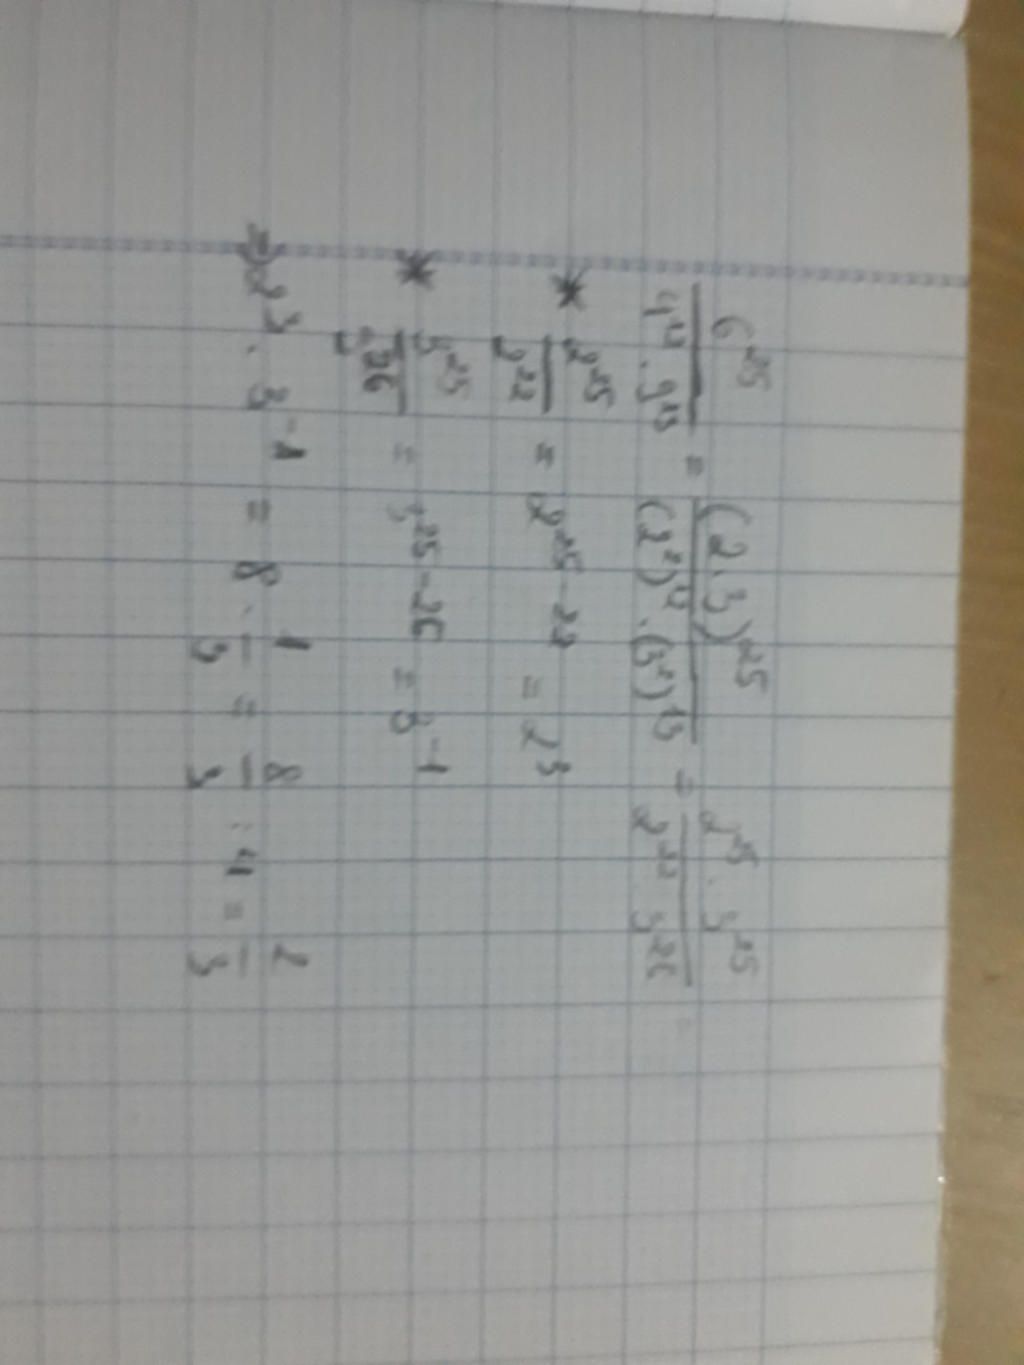 6^25 / (4^12 . 9^13) = (2.3)^25 / ((2^2)^12 . (3^2)^13) = (2^25 . 3^25) / (2^22 . 3^26)
* 2^25 / 2^22 = 2^25-22 = 2^3
* 3^25 / 3^26 = 3^25-26 = 3^-1
=> 2^3 . 3^-1 = 8 . 1/3 = 8/3 : 4 = 2/3